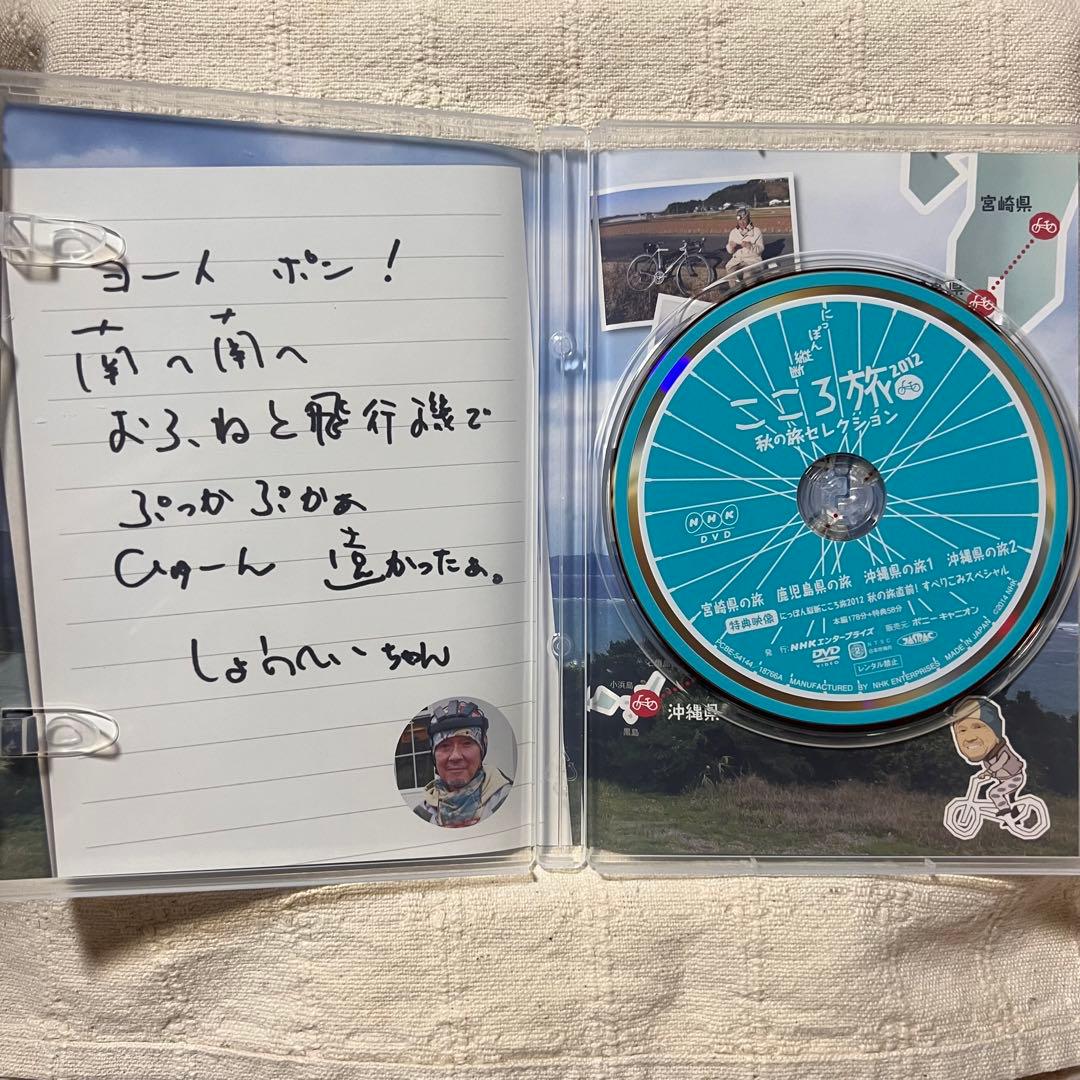 ヨーイ ポン!
南へ南へ
おふねと飛行機で
ぷっかぷかぁ
ひゅーん 遠かったぁ。
しょうへいちゃん
宮崎県
県
にっぽん
縦断
こころ旅2012
秋の旅セレクション
NHK
DVD
宮崎県の旅 鹿児島県の旅 沖縄県の旅1 沖縄県の旅2
特典映像 にっぽん縦断こころ旅2012 秋の旅直前!すべりこみスペシャル
本編178分+特典58分
発行:NHKエンタープライズ 販売元:ポニーキャニオン
DVD VIDEO 2 NTSC 日本市場向 JASRAC
レンタル禁止
PCBE-54144 18766A MANUFACTURED BY NHK ENTERPRISES MADE IN JAPAN ©2014 NHK
小浜島
沖縄県
黒島